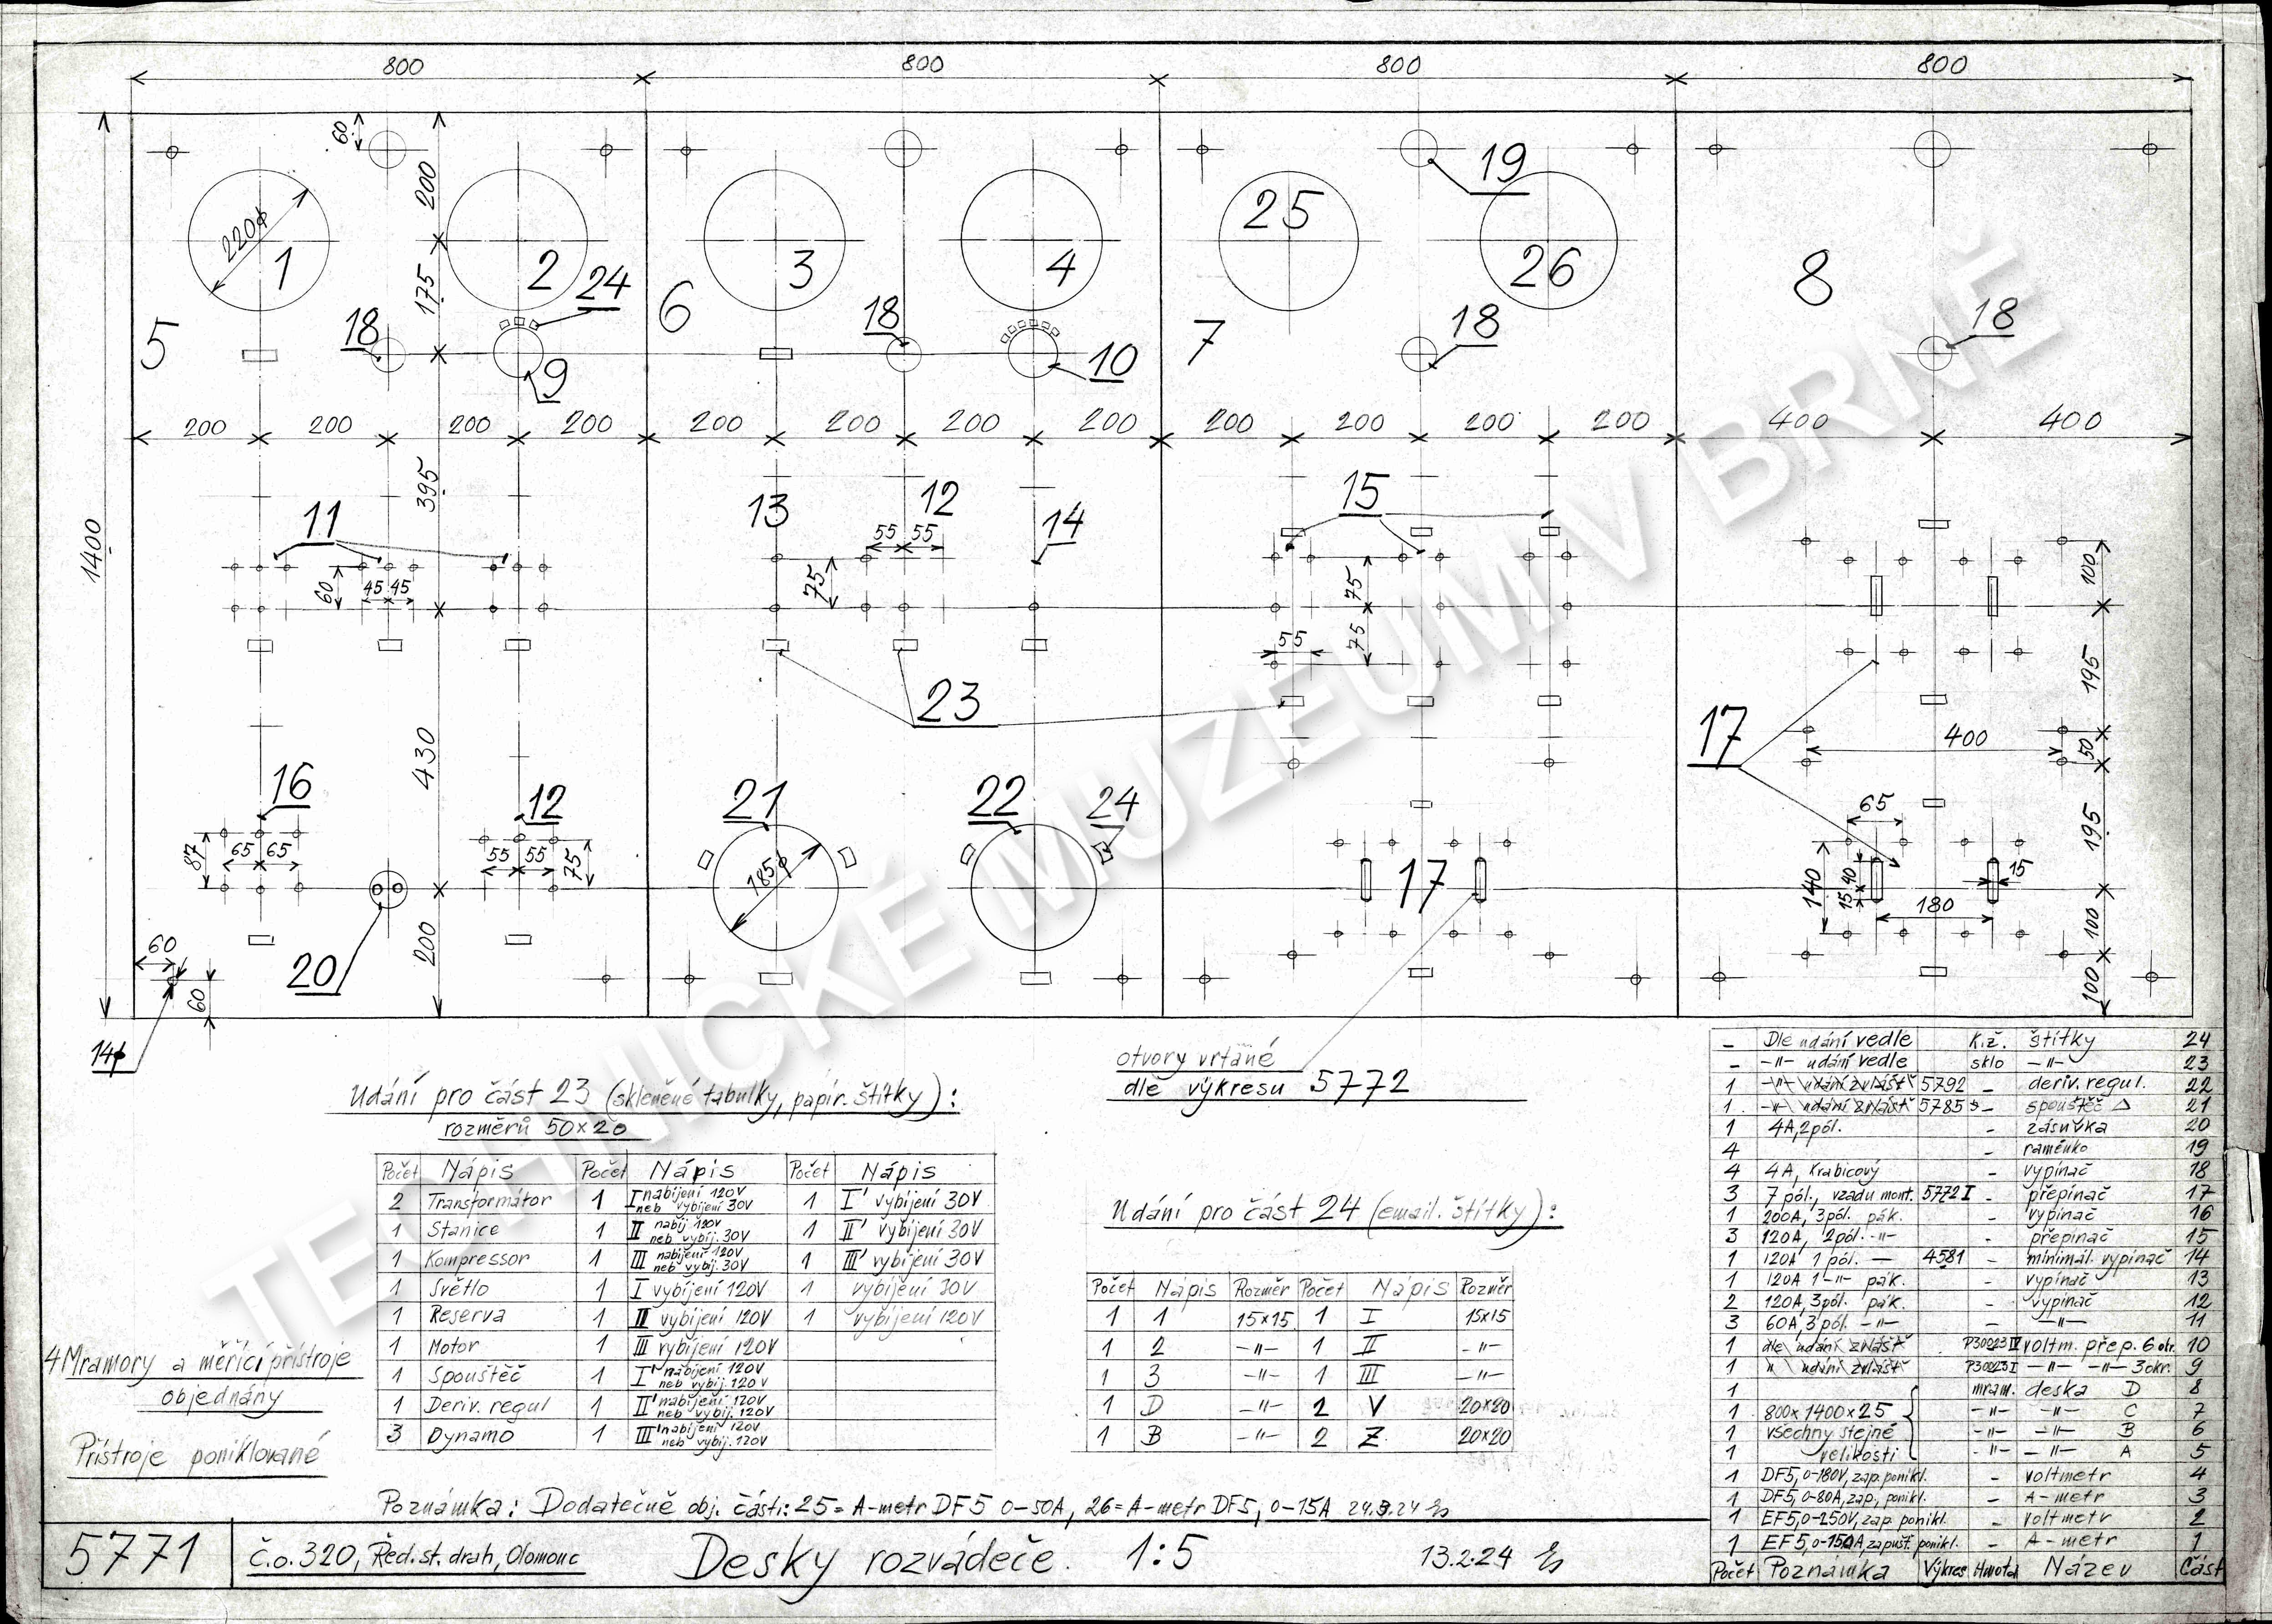 800 800 800 800
60 200 175 395 430 200 1400
220ϕ
1 2 24 3 4 25 19 26
5 18 9 6 18 10 7 18 8 18
200 200 200 200 200 200 200 200 200 200 200 200 400 400
11 13 12 14 15
60 45 45 55 55 75 75 75 55
23 17
100 195 50 400 195 100 100
16 12 21 22 24 17
87 65 65 55 55 75 185ϕ
65 140 15 40 15 180
20
60 60
14ϕ
TECHNICKÉ MUZEUM V BRNĚ
otvory vrtané
dle výkresu 5772
Udání pro část 23 (skleněné tabulky, papír. štítky):
rozměrů 50×20
Počet Nápis Počet Nápis Počet Nápis
2 Transformátor 1 I nabíjení 120V neb vybíjení 30V 1 I' vybíjení 30V
1 Stanice 1 II nabíj 120V neb vybíj. 30V 1 II' vybíjení 30V
1 Kompressor 1 III nabíjení 120V neb vybíj. 30V 1 III' vybíjení 30V
1 Světlo 1 I vybíjení 120V 1 vybíjení 30V
1 Reserva 1 II vybíjení 120V 1 vybíjení 120V
1 Motor 1 III vybíjení 120V
1 Spouštěč 1 I' nabíjení 120V neb vybíj. 120V
1 Deriv. regul 1 II' nabíjení 120V neb vybíj. 120V
3 Dynamo 1 III' nabíjení 120V neb vybíj. 120V
Udání pro část 24 (email. štítky):
Počet Nápis Rozměr Počet Nápis Rozměr
1 1 15×15 1 I 15×15
1 2 -"- 1 II -"-
1 3 -"- 1 III -"-
1 D -"- 2 V 20×20
1 B -"- 2 Z 20×20
4 Mramory a měřící přístroje
objednány
Přístroje poniklované
Poznámka: Dodatečně obj. části: 25 = A-metr DF5 0-50A, 26 = A-metr DF5, 0-15A 24.3.24
- Dle udání vedle K.ž. štítky 24
- -"- udání vedle sklo -"- 23
1 -"- udání zvlášť 5792 - deriv. regul. 22
1 -"- udání zvlášť 5785 - spouštěč △ 21
1 4A, 2pól. - zásuvka 20
4 - raménko 19
4 4A, Krabicový - vypínač 18
3 7 pól., vzadu mont. 5772 I - přepínač 17
1 200A, 3pól. pák. - vypínač 16
3 120A, 2pól. -"- - přepínač 15
1 120A 1 pól. - 4581 - minimál. vypínač 14
1 120A 1-"- pák. - vypínač 13
2 120A, 3pól. pák. - vypínač 12
3 60A, 3pól. -"- - -"- 11
1 dle udání zvlášť P30023 IV voltm. přep. 6 okr. 10
1 " udání zvlášť P30023 I -"- -"- 3 okr. 9
1 mram. deska D 8
1 800×1400×25 -"- -"- C 7
1 všechny stejné -"- -"- B 6
1 velikosti -"- -"- A 5
1 DF5, 0-180V, zap. ponikl. - voltmetr 4
1 DF5, 0-80A, zap., ponikl. - A-metr 3
1 EF5, 0-250V, zap. ponikl. - voltmetr 2
1 EF5, 0-150A, zapušť. ponikl. - A-metr 1
Počet Poznámka Výkres Hmota Název Část
5771 Č.o. 320, Řed. st. drah, Olomouc Desky rozváděče. 1:5 13.2.24